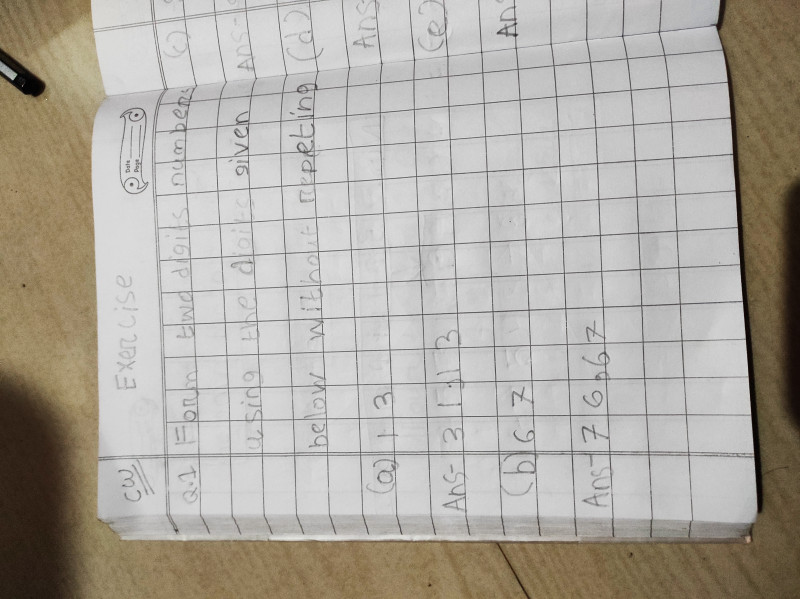 CW
Exercise
Date
Page
Q.1 Form two digits numbers
using the digits given
below without repeting
(a) 1 3
Ans- 3 1, 1 3
(b) 6 7
Ans- 7 6, 6 7
(c)
Ans-
(d)
Ans
(e)
An